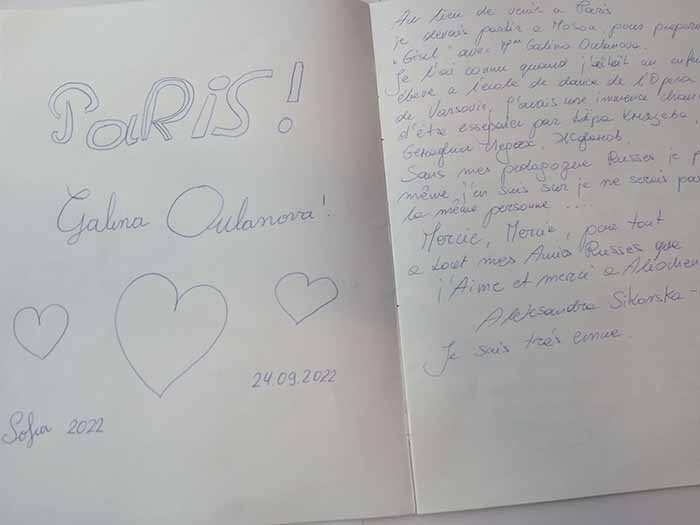 PaRiS!
Galina Oulanova!
24.09.2022
Sofia 2022
Au lieu de venir a Paris
je devais partir a Moscou pour prepare
"Gisel" avec Mme Galina Oulanova.
Je l'ai connu quand j'étais un enfan
élève a l'école de danse de l'Opera
de Varsovie, j'avais une immence chan
d'être par
Sans mes pedagogue Russes je
même j'en suis sur je ne serais pas
la même personne ....
Mercie, Mercie, pour tout
a tout mes Amis Russes que
j'Aime et merci a
Aleksandra Sikorska -
Je suis très emue.